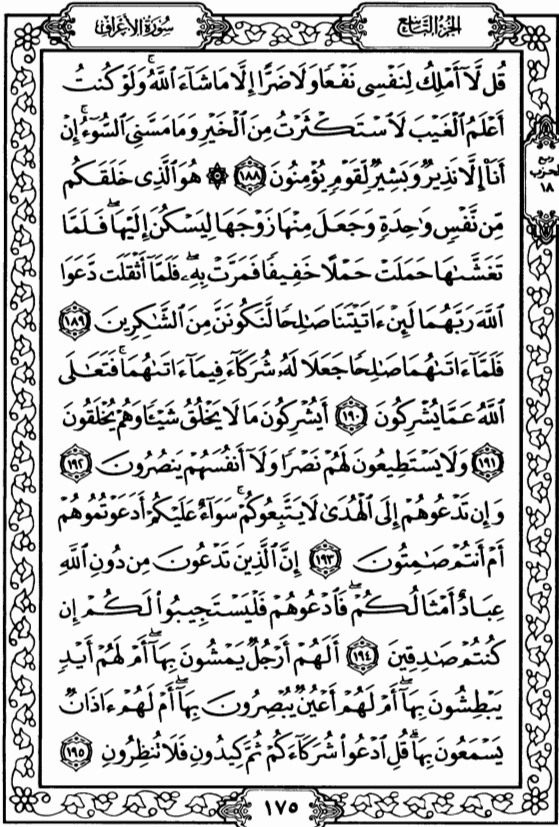 سُورَةُ الأَعْرَافِ
الجُزْءُ التَّاسِعُ
قُل لَّآ أَمْلِكُ لِنَفْسِى نَفْعًا وَلَا ضَرًّا إِلَّا مَا شَآءَ ٱللَّهُ ۚ وَلَوْ كُنتُ
أَعْلَمُ ٱلْغَيْبَ لَٱسْتَكْثَرْتُ مِنَ ٱلْخَيْرِ وَمَا مَسَّنِىَ ٱلسُّوٓءُ ۚ إِنْ
أَنَا۠ إِلَّا نَذِيرٌ وَبَشِيرٌ لِّقَوْمٍ يُؤْمِنُونَ ١٨٨ ۞ هُوَ ٱلَّذِى خَلَقَكُم
ربع
الحزب
١٨
مِّن نَّفْسٍ وَٰحِدَةٍ وَجَعَلَ مِنْهَا زَوْجَهَا لِيَسْكُنَ إِلَيْهَا ۖ فَلَمَّا
تَغَشَّىٰهَا حَمَلَتْ حَمْلًا خَفِيفًا فَمَرَّتْ بِهِۦ ۖ فَلَمَّآ أَثْقَلَت دَّعَوَا
ٱللَّهَ رَبَّهُمَا لَئِنْ ءَاتَيْتَنَا صَٰلِحًا لَّنَكُونَنَّ مِنَ ٱلشَّٰكِرِينَ ١٨٩
فَلَمَّآ ءَاتَىٰهُمَا صَٰلِحًا جَعَلَا لَهُۥ شُرَكَآءَ فِيمَآ ءَاتَىٰهُمَا ۚ فَتَعَٰلَى
ٱللَّهُ عَمَّا يُشْرِكُونَ ١٩٠ أَيُشْرِكُونَ مَا لَا يَخْلُقُ شَيْـًٔا وَهُمْ يُخْلَقُونَ
١٩١ وَلَا يَسْتَطِيعُونَ لَهُمْ نَصْرًا وَلَآ أَنفُسَهُمْ يَنصُرُونَ ١٩٢
وَإِن تَدْعُوهُمْ إِلَى ٱلْهُدَىٰ لَا يَتَّبِعُوكُمْ ۚ سَوَآءٌ عَلَيْكُمْ أَدَعَوْتُمُوهُمْ
أَمْ أَنتُمْ صَٰمِتُونَ ١٩٣ إِنَّ ٱلَّذِينَ تَدْعُونَ مِن دُونِ ٱللَّهِ
عِبَادٌ أَمْثَالُكُمْ ۖ فَٱدْعُوهُمْ فَلْيَسْتَجِيبُوا۟ لَكُمْ إِن
كُنتُمْ صَٰدِقِينَ ١٩٤ أَلَهُمْ أَرْجُلٌ يَمْشُونَ بِهَآ ۖ أَمْ لَهُمْ أَيْدٍ
يَبْطِشُونَ بِهَآ ۖ أَمْ لَهُمْ أَعْيُنٌ يُبْصِرُونَ بِهَآ ۖ أَمْ لَهُمْ ءَاذَانٌ
يَسْمَعُونَ بِهَا ۗ قُلِ ٱدْعُوا۟ شُرَكَآءَكُمْ ثُمَّ كِيدُونِ فَلَا تُنظِرُونِ ١٩٥
١٧٥